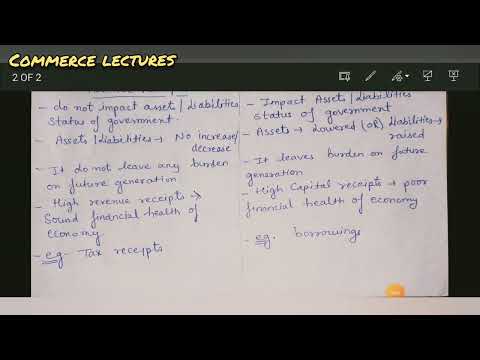 COMMERCE LECTURES
2 OF 2
- do not impact asset/liabilities
status of government
- Assets/liabilities → No increase/
decrease
- It do not leave any burden
on future generation
- High revenue receipts →
Sound financial health of
economy.
- e.g- Tax receipts
- Impact Assets/liabilities
status of government
- Assets → Lowered (OR) liabilities →
raised
- It leaves burden on future
generation
- High Capital receipts → poor
financial health of economy
- eg. borrowings